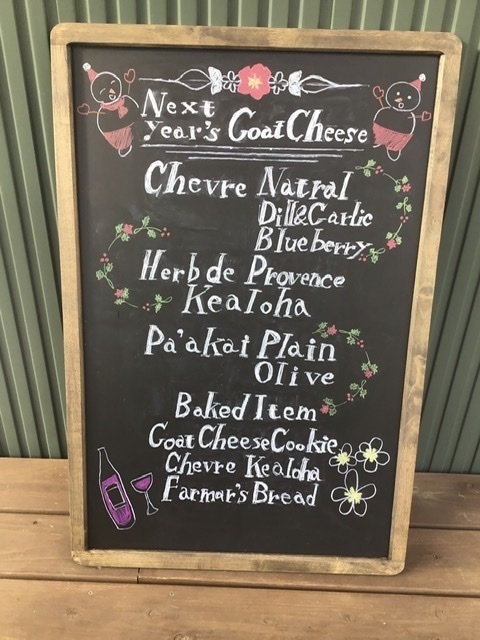 Next
Year's Goat Cheese
Chevre Natral
Dill&Garlic
Blueberry
Herb de Provence
Kealoha
Pa'akai Plain
Olive
Baked Item
Goat Cheese Cookie
Chevre Kealoha
Farmar's Bread